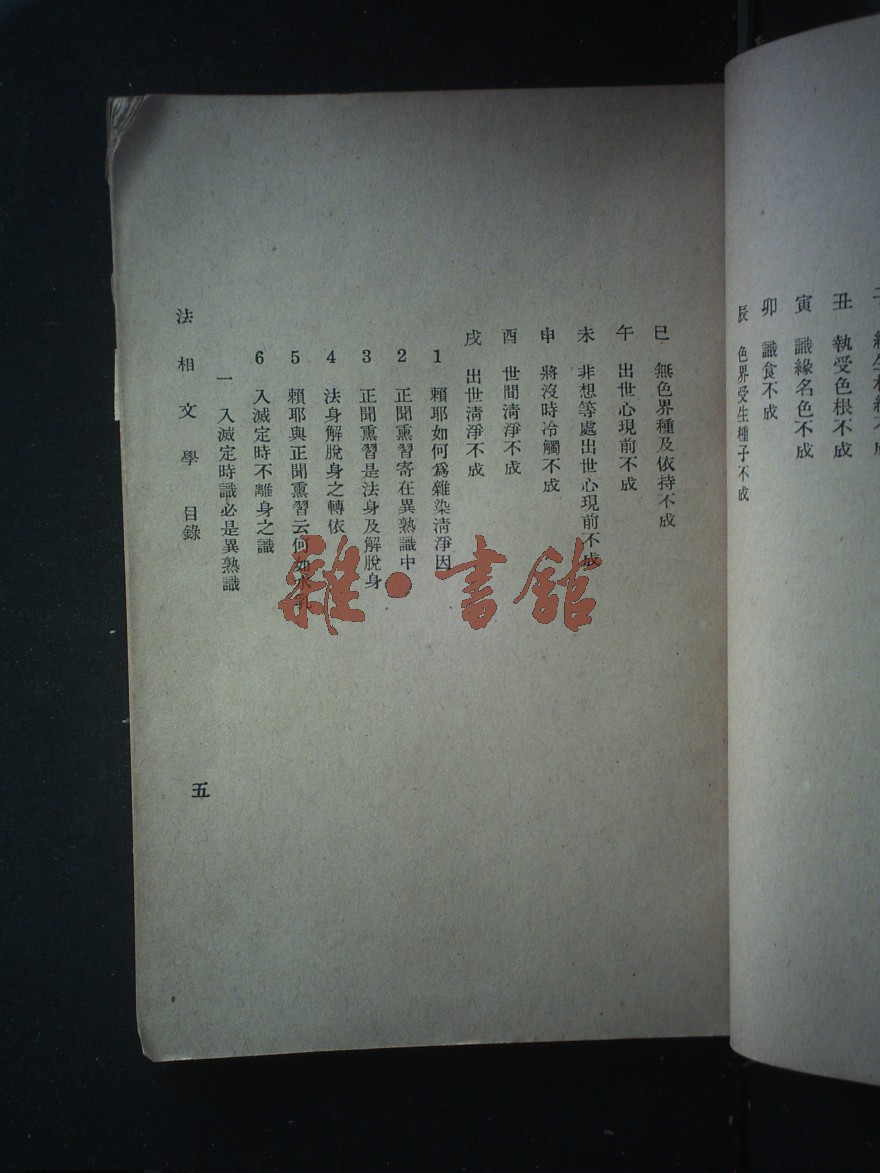 丑　執受色根不成
寅　識緣名色不成
卯　識食不成
辰　色界受生種子不成
巳　無色界種及依持不成
午　出世心現前不成
未　非想等處出世心現前不成
申　將沒時冷觸不成
酉　世間淸淨不成
戌　出世淸淨不成
1　賴耶如何爲雜染淸淨因
2　正聞熏習寄在異熟識中
3　正聞熏習是法身及解脫身
4　法身解脫身之轉依
5　賴耶與正聞熏習云何如水乳
6　入滅定時不離身之識
一　入滅定時識必是異熟識
法相文學　目錄
五
雜·書館